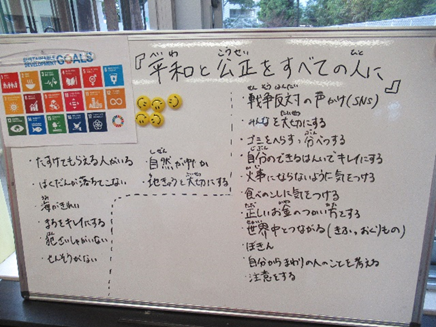 SUSTAINABLE DEVELOPMENT GOALS
『平和と公正をすべての人に』
・たすけてもらえる人がいる
・ばくだんが落ちてこない
・海がきれい
・まちをキレイにする
・犯ざいしゃがいない
・せんそうがない
・自然が豊か
・地きゅうを大切にする
・戦争反対の声かけ(SNS)
・みんなを大切にする
・ゴミをへらす、分べつする
・自分のできるはんいでキレイにする
・火事にならないように気をつける
・食べのこしに気をつける
・正しいお金のつかい方をする
・世界中とつながる(きふ、おくりもの)
・ぼきん
・自分からまわりの人のことを考える
・注意をする